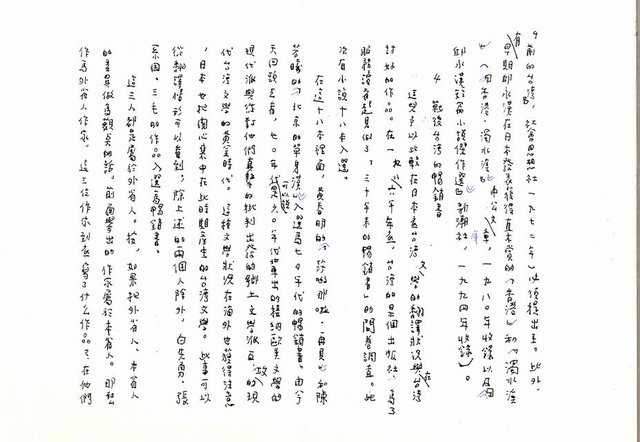 前的台灣』社會思想社一九七三年)必須提出来。此外,
早期邱永漢在日本發表後獲直木賞的「香港」和「濁水溪」
有《香港・濁水溪》中公文庫,一九八〇年收錄以及
邱永漢短篇小說傑作選》新潮社,一九九四年收錄)。
4 戰後台灣的暢銷書
這與予以比較在日本台灣文學的翻譯狀況與在台灣
討好的作品。在一九八六年,台灣的某個出版社,為了
服務讀者起見做了,三十年来的暢銷書」的問卷調查。此
次有小說十八本入選。
在這十八本裡面,黃春明的莎喲娜啦・再見』和陳
若曦的『北京的單身漢』入選為七〇年代的暢銷書。由今
天回顧去看,七〇年代可以說是六〇年代輩出的接納歐美文學的
現代派與作對他們真摯的批判出發的鄉土文學派互放的現
代台灣文學的黃金時代。這種文學狀況在海外也獲得注意
,日本也把關心集中在此時期產生的台灣文學。此事可以
從翻譯情形可以看到,除上述的兩個人除外,白先勇、張
系國、三毛的作品入選為暢銷書。
這三人都是屬於外省人。按,如果把外省人、本省人
的差異做為觀點的話。前面舉出的作家屬於本省人。那麼
作為外省人作家,這三位作家到底寫了什么作品?在他們